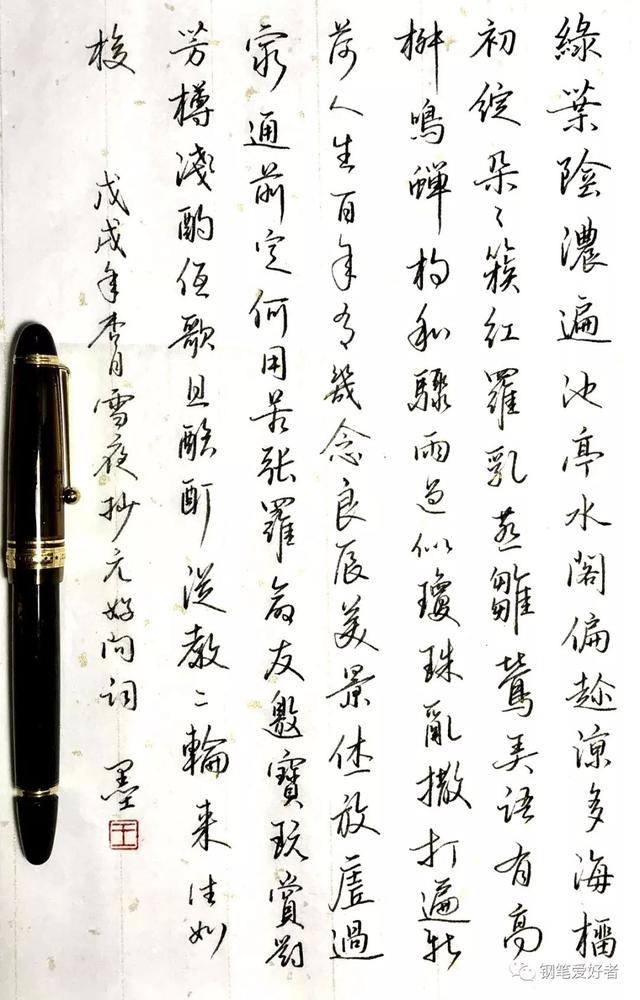 綠葉陰濃遍池亭水閣偏趁涼多海榴
初綻朵々簇紅羅乳燕雛鶯弄語有高
柳鳴蟬相和驟雨過似瓊珠亂撒打遍新
荷人生百年有幾念良辰美景休放虛過
窮通前定何用苦张羅命友邀寶玩賞對
芳樽淺酌低歌且酩酊從教二輪來往如
梭
戊戌年月雪夜抄元好问词 墨
王
钢笔爱好者